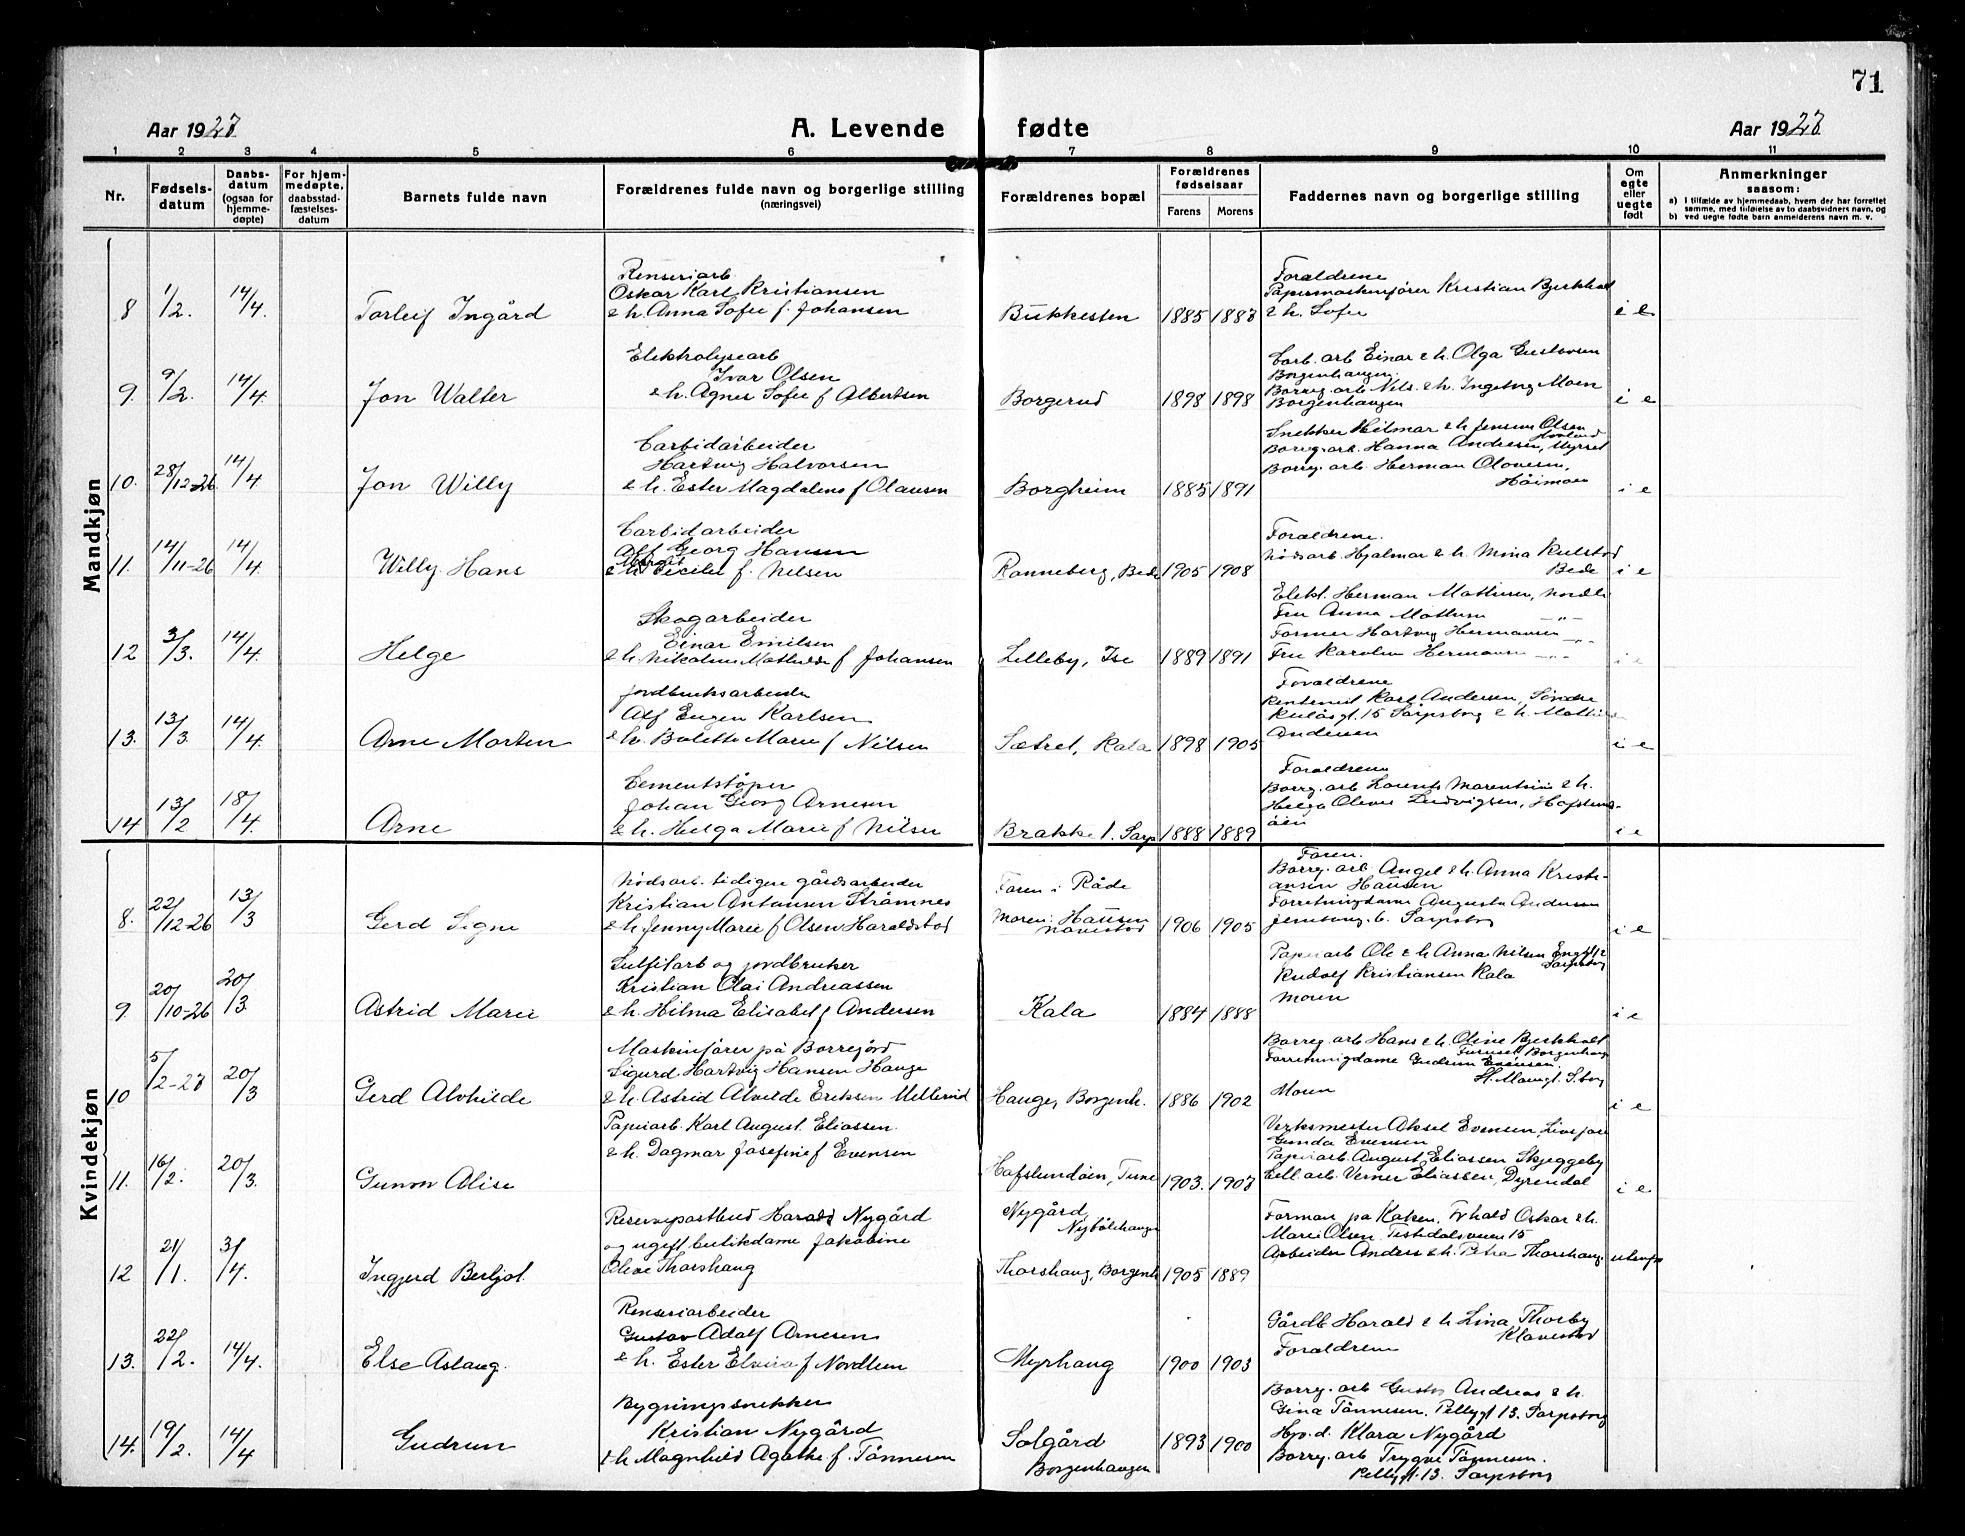 71
Aar 1927 A. Levende fødte Aar 1927
1 2 3 4 5 6 7 8 9 10 11
Nr. Fødselsdatum Daabsdatum (ogsaa for hjemmedøpte) For hjemmedøpte, daabsstadfæstelsesdatum Barnets fulde navn Forældrenes fulde navn og borgerlige stilling (næringsvei) Forældrenes bopæl Forældrenes fødselsaar Farens Morens Faddernes navn og borgerlige stilling Om egte eller uegte født Anmerkninger saasom:
a) I tilfælde av hjemmedaab, hvem der har forrettet samme, med tilføielse av to daabsvidners navn, og
b) ved uegte fødte barn anmelderens navn m. v.
Mandkjøn
Renseriarb Foraldrene
Oskar Karl Kristiansen Papermaskinfører Kristian Bjerkholt
8 1/2. 14/4. Torleif Ingård & h. Anna Sofie f. Johansen Bukkesten 1885 1887 & h. Sofie i e
Elektrolysearb Carb. arb Einar & h. Olga Gustavsen
Ivar Olsen Borgenhaugen.
9. 9/2. 14/4. Jon Walter & h. Agnes Sofie f Albertsen Borgerud 1898 1898 Borreg. arb Nils & h. Ingeborg Moen i e
Borgenhaugen
Carbidarbeider Snekker Hilmar & h Jensine Olsen
Hartvig Halvorsen Borreg. arb. Hanna Andresen, Myrset
10. 28/12-26 14/4 Jon Willy & h. Ester Magdalene f Olausen Borgheim 1885 1891 Borreg. arb. Herman Olavesen, Håimoen i e
Carbidarbeider Foraldrene.
Alf Georg Hansen Nødsarb. Hjalmar & h. Mina Kulstad
11. 14/11-26 14/4 Willy Hans & h Margit Cecilie f. Nilsen Ranneberg, Bede 1905 1908 Bede i e
Skogarbeider Elekt. Herman Mathisen, Nordli
Einar Emilsen Fru Anna Mathisen -"-
12 3/3. 14/4. Helge & h. Nikoline Mathilde f Johansen Lilleby, Ise 1889 1891 Former Hartvig Hermansen -"- i e
Fru Karoline Hermansen -"-
Jordbruksarbeider Foraldrene
Alf Eugen Karlsen Rentenist Karl Andersen, Søndre
13. 13/3 14/4. Arne Morten & h. Bolette Marie f Nilsen Sætret, Kala 1898 1905 Kulåsgt. 15 Sarpsborg & h. Mathi Andersen i e
Cementstøper Foraldrene
Johan Georg Arnesen Borreg. arb Lorents Marentius & h.
14 13/2 18/4. Arne & h. Helga Marie f Nilsen Brække 1. Sarp 1888 1889 Helga Olevie Ludvigsen, Hafslundøen i e
Kvindekjøn
Nødsarb. tidigere gårdsarbeider Faren i Råde Faren.
Kristian Antonsen Strømnes Borreg. arb Angel & h. Anna Kristiansen Hansen
8. 22/12-26 13/3 Gerd Signe & h. Jenny Marie f Olsen Haraldstad Moren: Hansen Navestad 1906 1905 Forretningdame Augusta Andersen i e
Sarpsborg
Sulfitarb og jordbruker Papirarb Ole & h Anna Nilsen Sarpsborg
Kristian Olai Andreassen Rudolf Kristiansen Kala
9. 20/10-26 20/3. Astrid Marie & h. Hilma Elisabet f Andersen Kala 1884 1888 Moren i e
Maskinfører på Borrejord Borreg. arb Hans & h. Oline Bjerkholt
Sigurd Hartvig Hansen Hauge Forretningdame Gudrun Evensen.
10 5/2-27 20/3 Gerd Alvhilde & h. Astrid Alvilde Eriksen Mellerud Hauge, Borgenh. 1886 1902 Moren i e
Papirarb. Karl August Eliassen. Verksmester Aksel Evensen,
& h. Dagmar Josefine f Evensen Gunda Evensen
11. 16/2. 20/3. Gunvor Alise Hafslundøen, Tune 1903. 1907 Papirarb. August Eliassen Skjeggeby i e
Cell. arb. Verner Eliassen, Dyrendal
Reservepostbud Harald Nygård Nygård Nybølehaugen Forman på Kaken. Tvhald Oskar & h.
og ugift butikdame Jakobine Marie Olsen. Tistedalsveien 15
12 21/1. 3/4. Ingjerd Berljot. Olive Thorshaug Thorshaug, Borgenh 1905 1889 Arbeider Anders & h. Petra Thorshaug.
Renseriarbeider Gårdb Harald & h Lina Thorsby
Gustav Adolf Arnesen Klavestad
13. 22/2. 14/4. Else Aslaug. & h. Ester Elvira f Nordlien Myrhaug 1900 1903 Foraldrene i e
Bygningssnekker Borreg. arb Gustav Andreas & h.
Kristian Nygård Gina Tønnesen. Pellygt 13. Sarpsborg
14. 19/2. 14/4 Gudrun & h Magnhild Agathe f. Tønnesen Solgård Borgenhaugen 1893 1900 Hjv. d. Klara Nygård
Borreg. arb Trygve Tønnesen.
Pellygt. 13. Sarpsborg